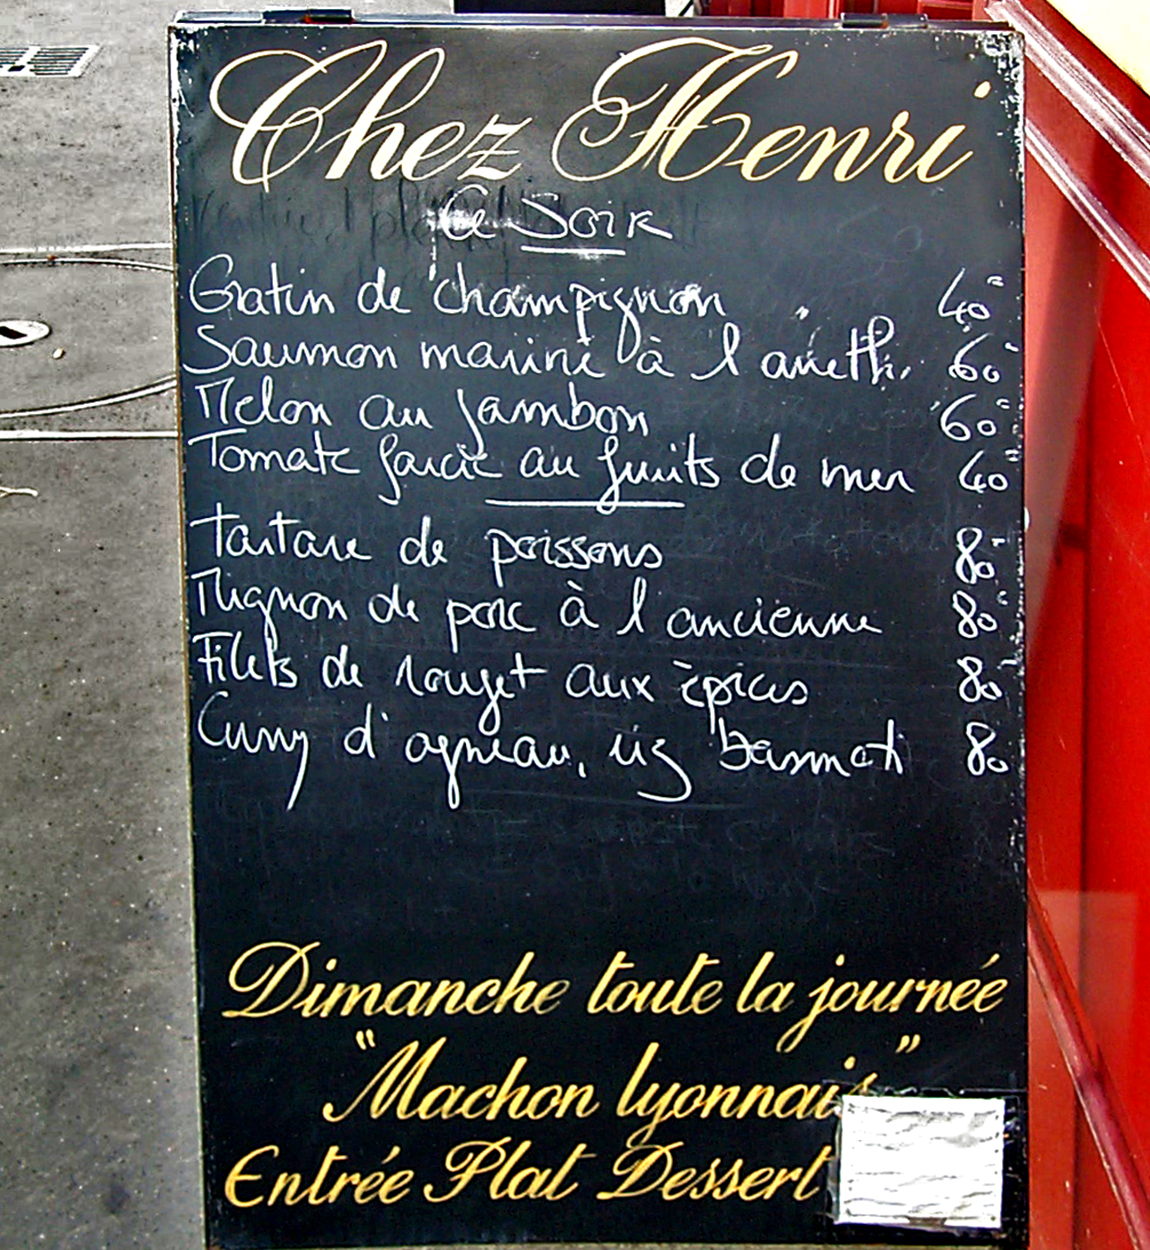 Chez Henri
Ce Soir
Gratin de champignon 40
Saumon mariné à l aneth 60
Melon au jambon 60
Tomate farcie au fruits de mer 40
Tartare de poissons 80
Mignon de porc à l ancienne 80
Filets de rouget aux épices 80
Curry d'agneau, riz basmati 80
Dimanche toute la journée
"Machon lyonnais"
Entrée Plat Dessert